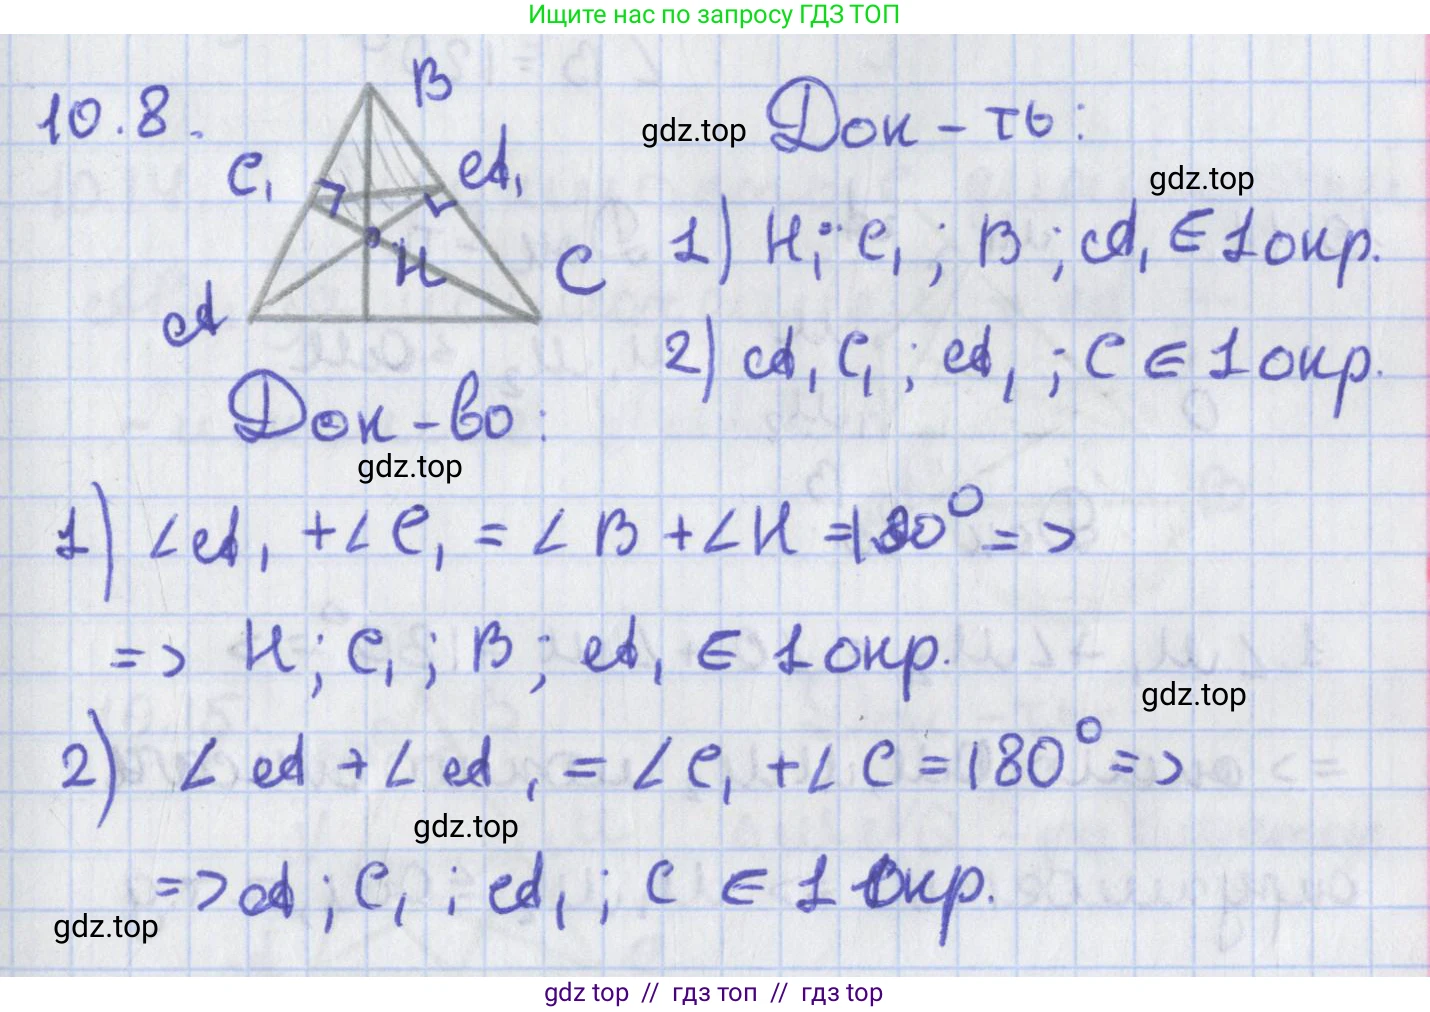 Ищите нас по запросу ГДЗ ТОП
10.8.
B
C₁
A₁
H
A
C
Док-ть:
gdz.top
gdz.top
1) H; C₁; B; A₁ ∈ 1 окр.
2) A, C₁; A₁; C ∈ 1 окр.
Док-во:
gdz.top
1) ∠A₁ + ∠C₁ = ∠B + ∠H = 180° =>
=> H; C₁; B; A₁ ∈ 1 окр.
gdz.top
2) ∠A + ∠A₁ = ∠C₁ + ∠C = 180° =>
gdz.top
=> A; C₁; A₁; C ∈ 1 окр.
gdz.top
gdz top // гдз топ // гдз top